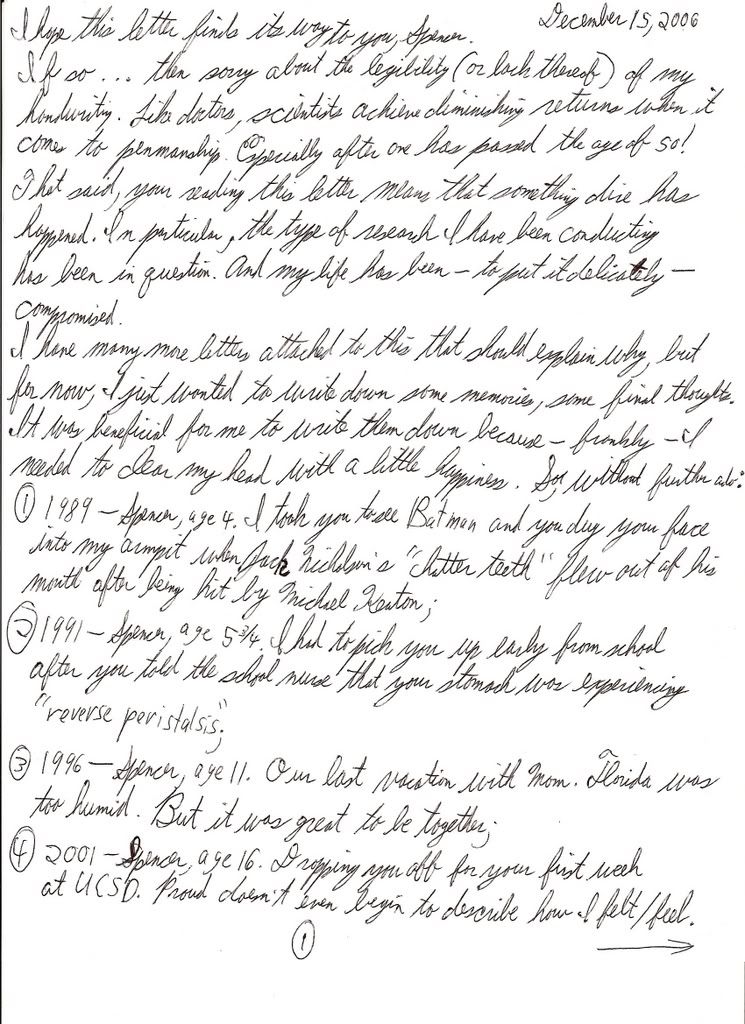 December 15, 2006
I hope this letter finds its way to you, Spencer.
If so ... then sorry about the legibility (or lack thereof) of my
handwriting. Like doctors, scientists achieve diminishing returns when it
comes to penmanship. Especially after one has passed the age of 50!
That said, your reading this letter means that something dire has
happened. In particular, the type of research I have been conducting
has been in question. And my life has been – to put it delicately –
compromised.
I have many more letters attached to this that should explain why, but
for now, I just wanted to write down some memories, some final thoughts.
It was beneficial for me to write them down because – frankly – I
needed to clear my head with a little happiness. So, without further ado:
① 1989 – Spencer, age 4. I took you to see Batman and you dug your face
into my armpit when Jack Nicholson's "chatter teeth" flew out of his
mouth after being hit by Michael Keaton;
② 1991 – Spencer, age 5 3/4. I had to pick you up early from school
after you told the school nurse that your stomach was experiencing
"reverse peristalsis";
③ 1996 – Spencer, age 11. Our last vacation with Mom. Florida was
too humid. But it was great to be together;
④ 2001 – Spencer, age 16. Dropping you off for your first week
at UCSD. Proud doesn't even begin to describe how I felt/feel.
① →